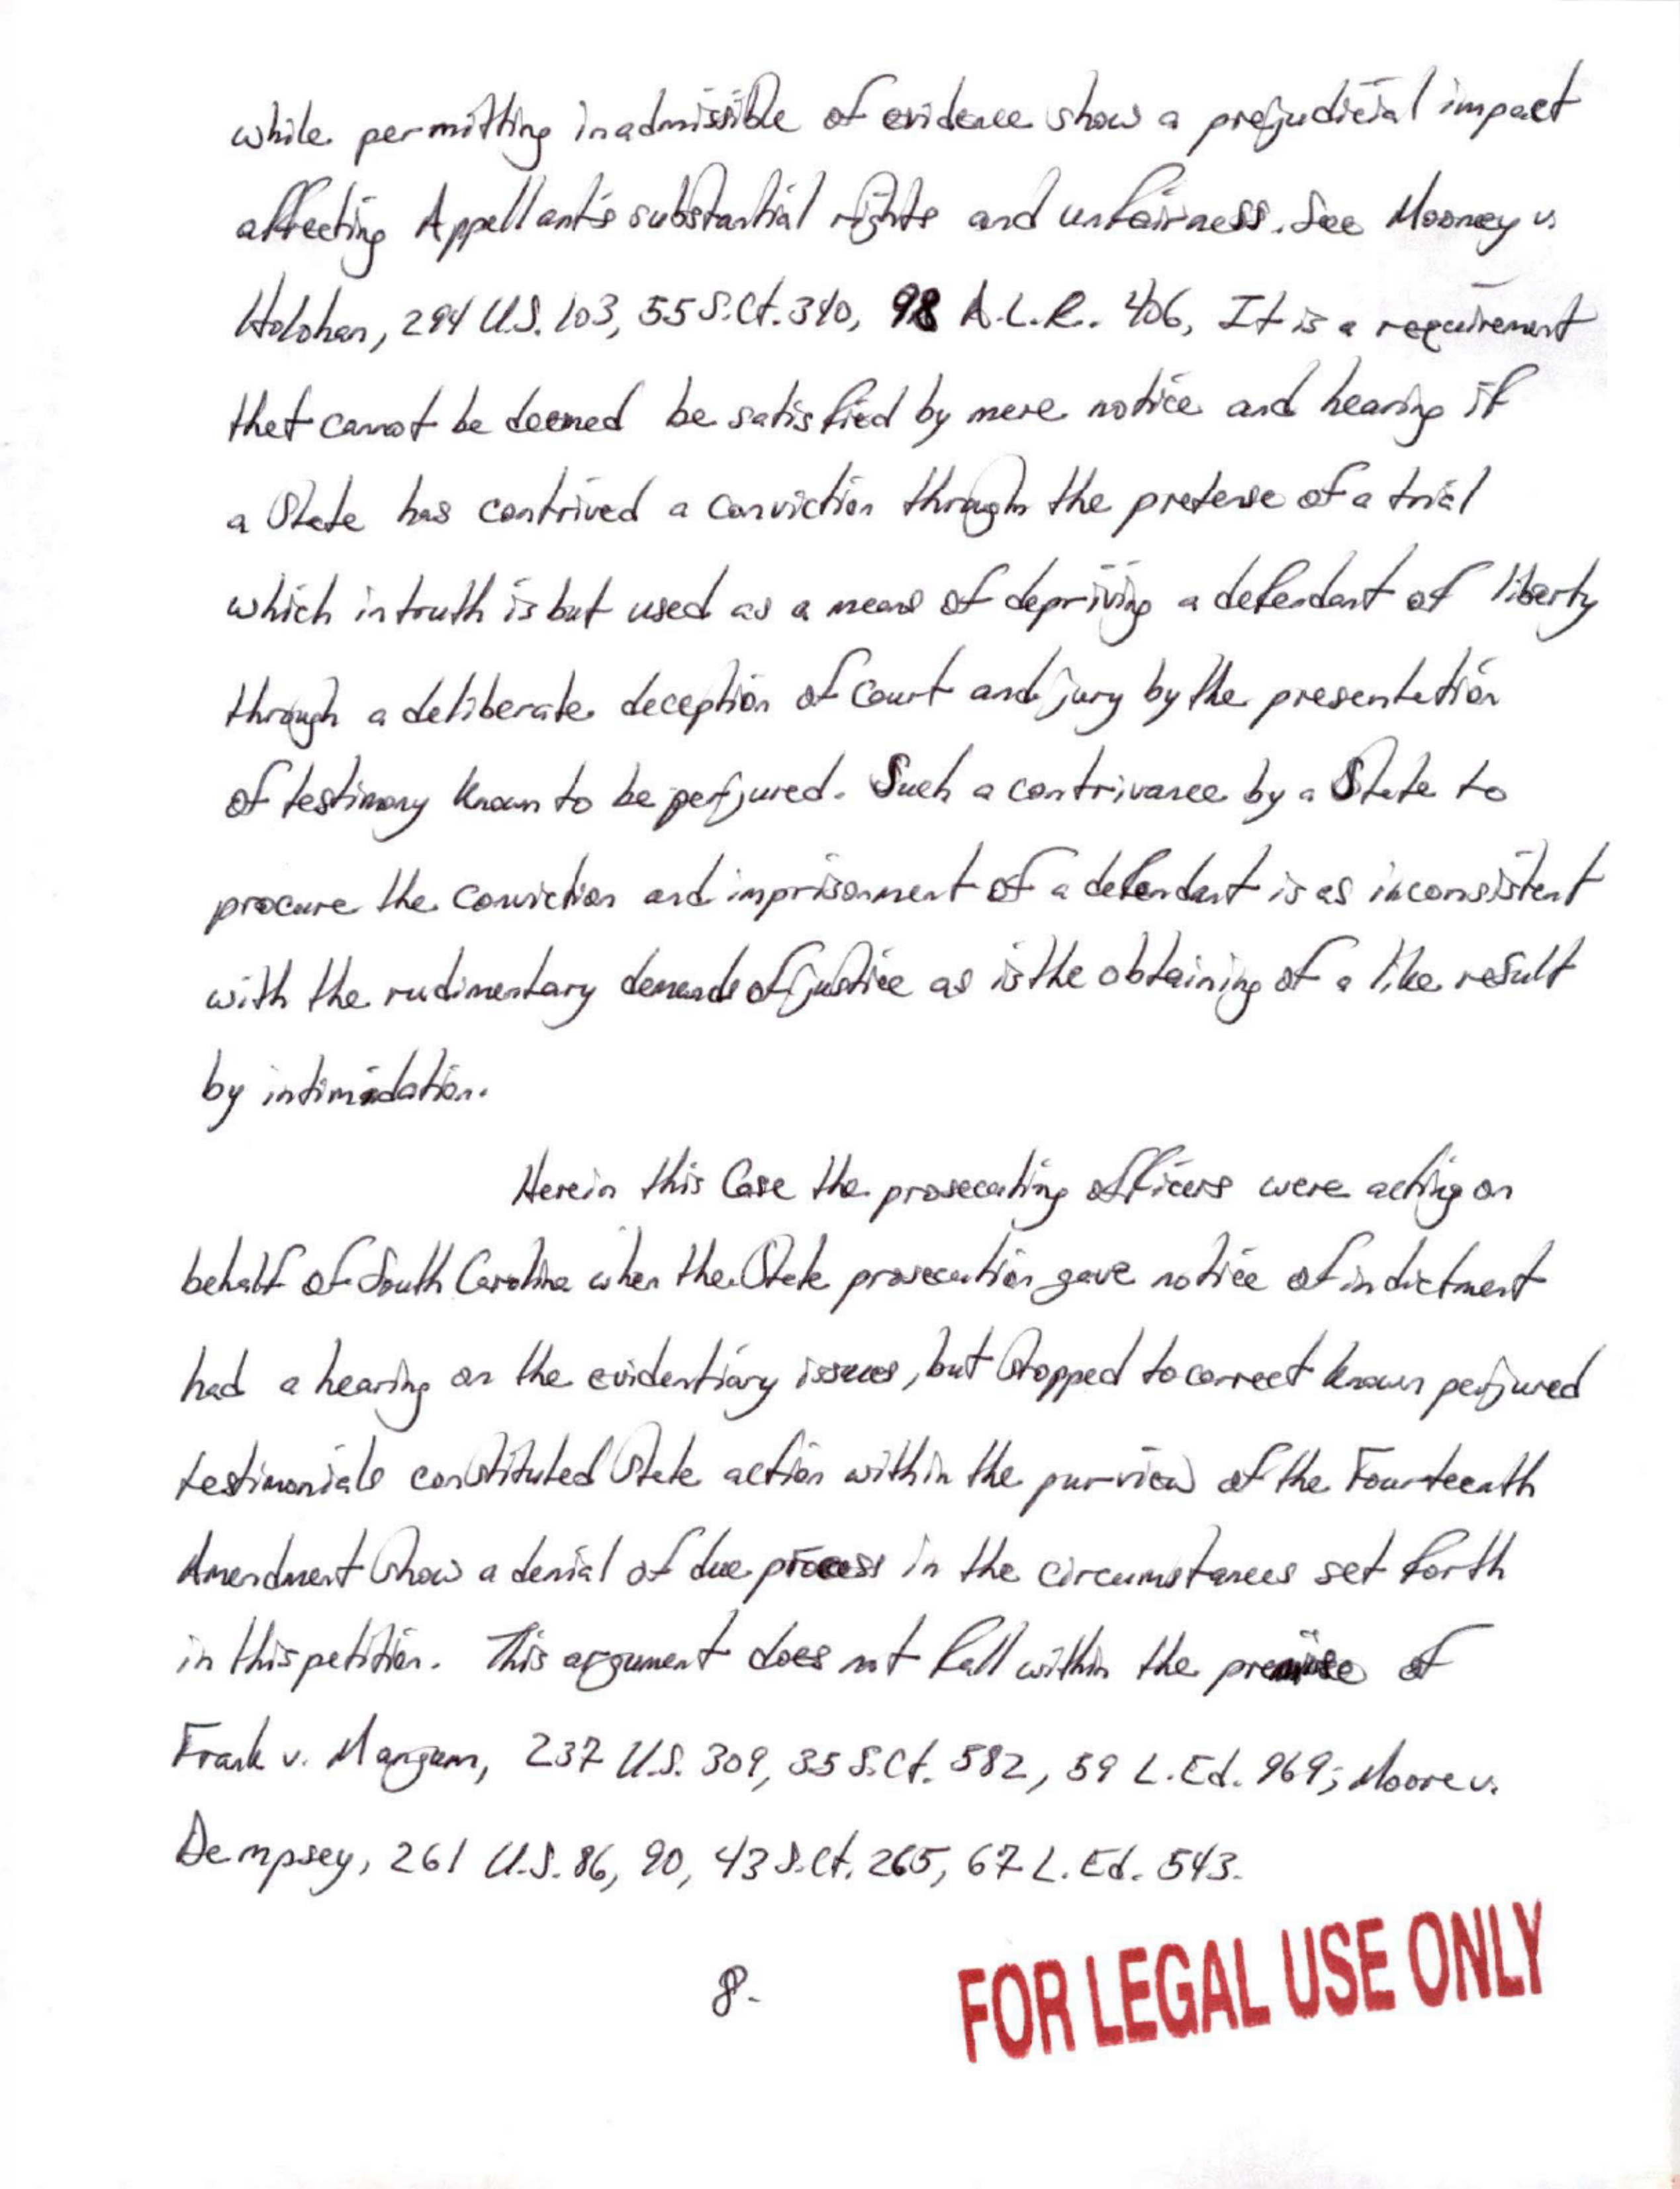 while permitting inadmissible of evidence show a prejudicial impact
affecting Appellant's substantial rights and unfairness. See Mooney v.
Holohan, 294 U.S. 103, 55 S.Ct. 340, 98 A.L.R. 406, It is a requirement
thet cannot be deemed be satisfied by mere notice and hearing if
a State has contrived a conviction through the pretense of a trial
which in truth is but used as a means of depriving a defendant of liberty
through a deliberate deception of court and jury by the presentation
of testimony known to be perjured. Such a contrivance by a State to
procure the conviction and imprisonment of a defendant is as inconsistent
with the rudimentary demands of justice as is the obtaining of a like result
by intimidation.
Herein this Case the prosecuting officers were acting on
behalf of South Carolina when the State prosecution gave notice of indictment
had a hearing on the evidentiary issues, but stopped to correct known perjured
testimonials constituted State action within the purview of the Fourteenth
Amendment show a denial of due process in the circumstances set forth
in this petition. This argument does not fall within the premise of
Frank v. Mangum, 237 U.S. 309, 35 S.Ct. 582, 59 L.Ed. 969; Moore v.
Dempsey, 261 U.S. 86, 90, 43 S.Ct. 265, 67 L.Ed. 543.
8.
FOR LEGAL USE ONLY